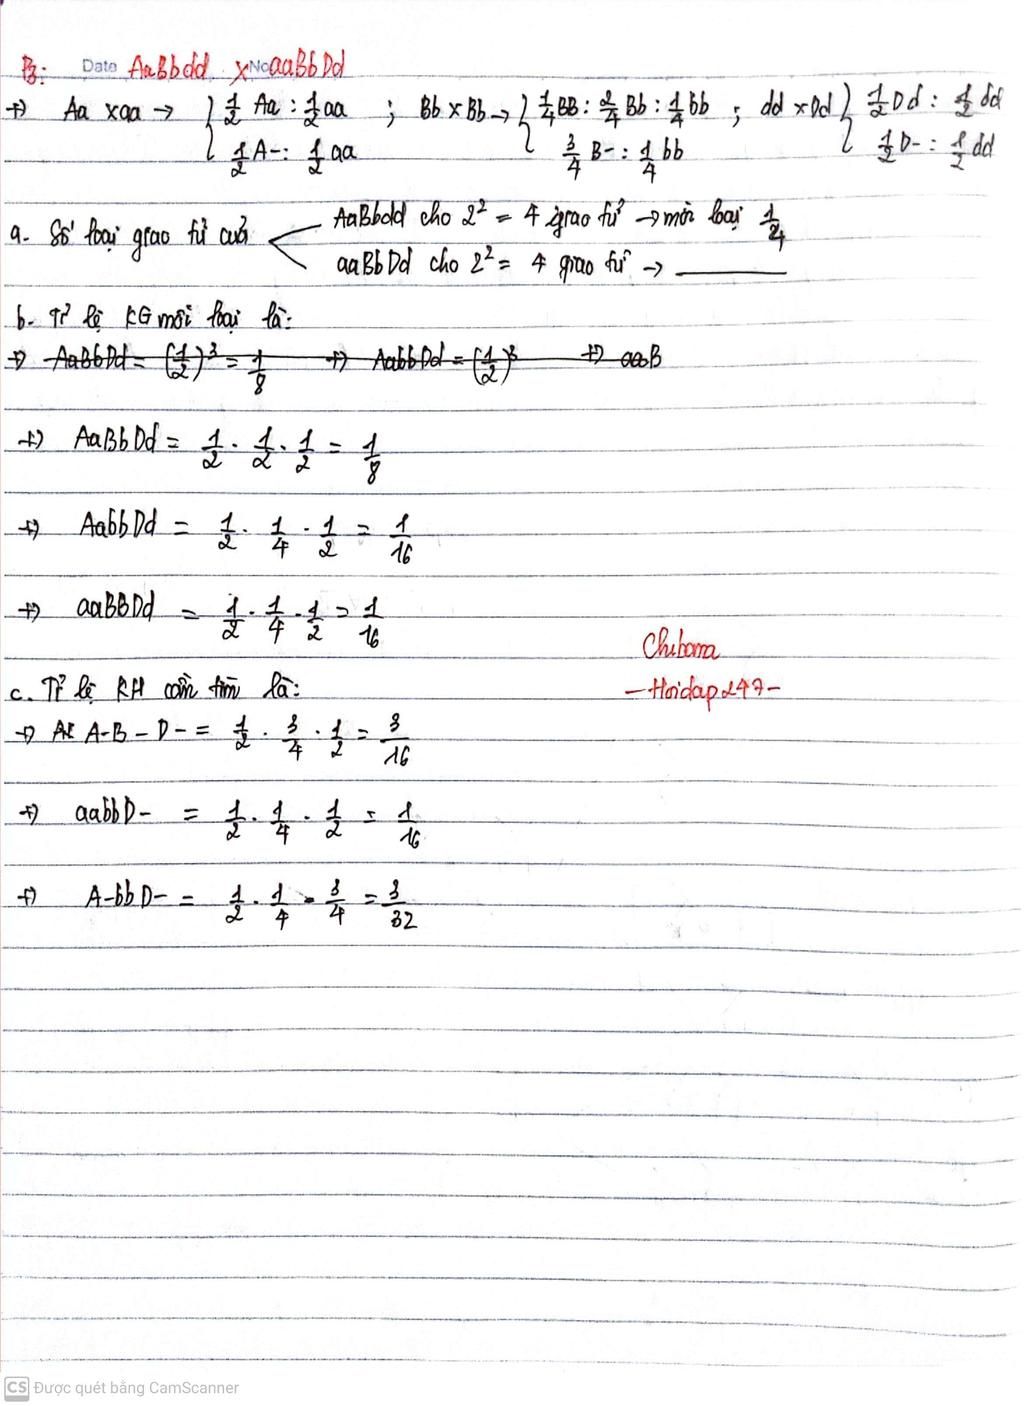 Date No
P: AaBbdd x aaBbDd
+) Aa x aa → { 1/2 Aa : 1/2 aa ; Bb x Bb → { 1/4 BB : 2/4 Bb : 1/4 bb ; dd x Dd { 1/2 Dd : 1/2 dd
1/2 A- : 1/2 aa 3/4 B- : 1/4 bb 1/2 D- : 1/2 dd
a. Số loại giao tử của
AaBbdd cho 2² = 4 giao tử → mỗi loại 1/4
aaBbDd cho 2² = 4 giao tử →
b. Tỉ lệ KG mỗi loại là:
+) AaBbDd = (1/2)³ = 1/8 +) AabbDd = (1/2)³ +) aaB
+) AaBbDd = 1/2 . 1/2 . 1/2 = 1/8
+) AabbDd = 1/2 . 1/4 . 1/2 = 1/16
+) aaBBDd = 1/2 . 1/4 . 1/2 = 1/16
Chibana
- Hoidap247 -
c. Tỉ lệ KH cần tìm là:
+) A-B-D- = 1/2 . 3/4 . 1/2 = 3/16
+) aabbD- = 1/2 . 1/4 . 1/2 = 1/16
+) A-bbD- = 1/2 . 1/4 . 3/4 = 3/32
CS Được quét bằng CamScanner